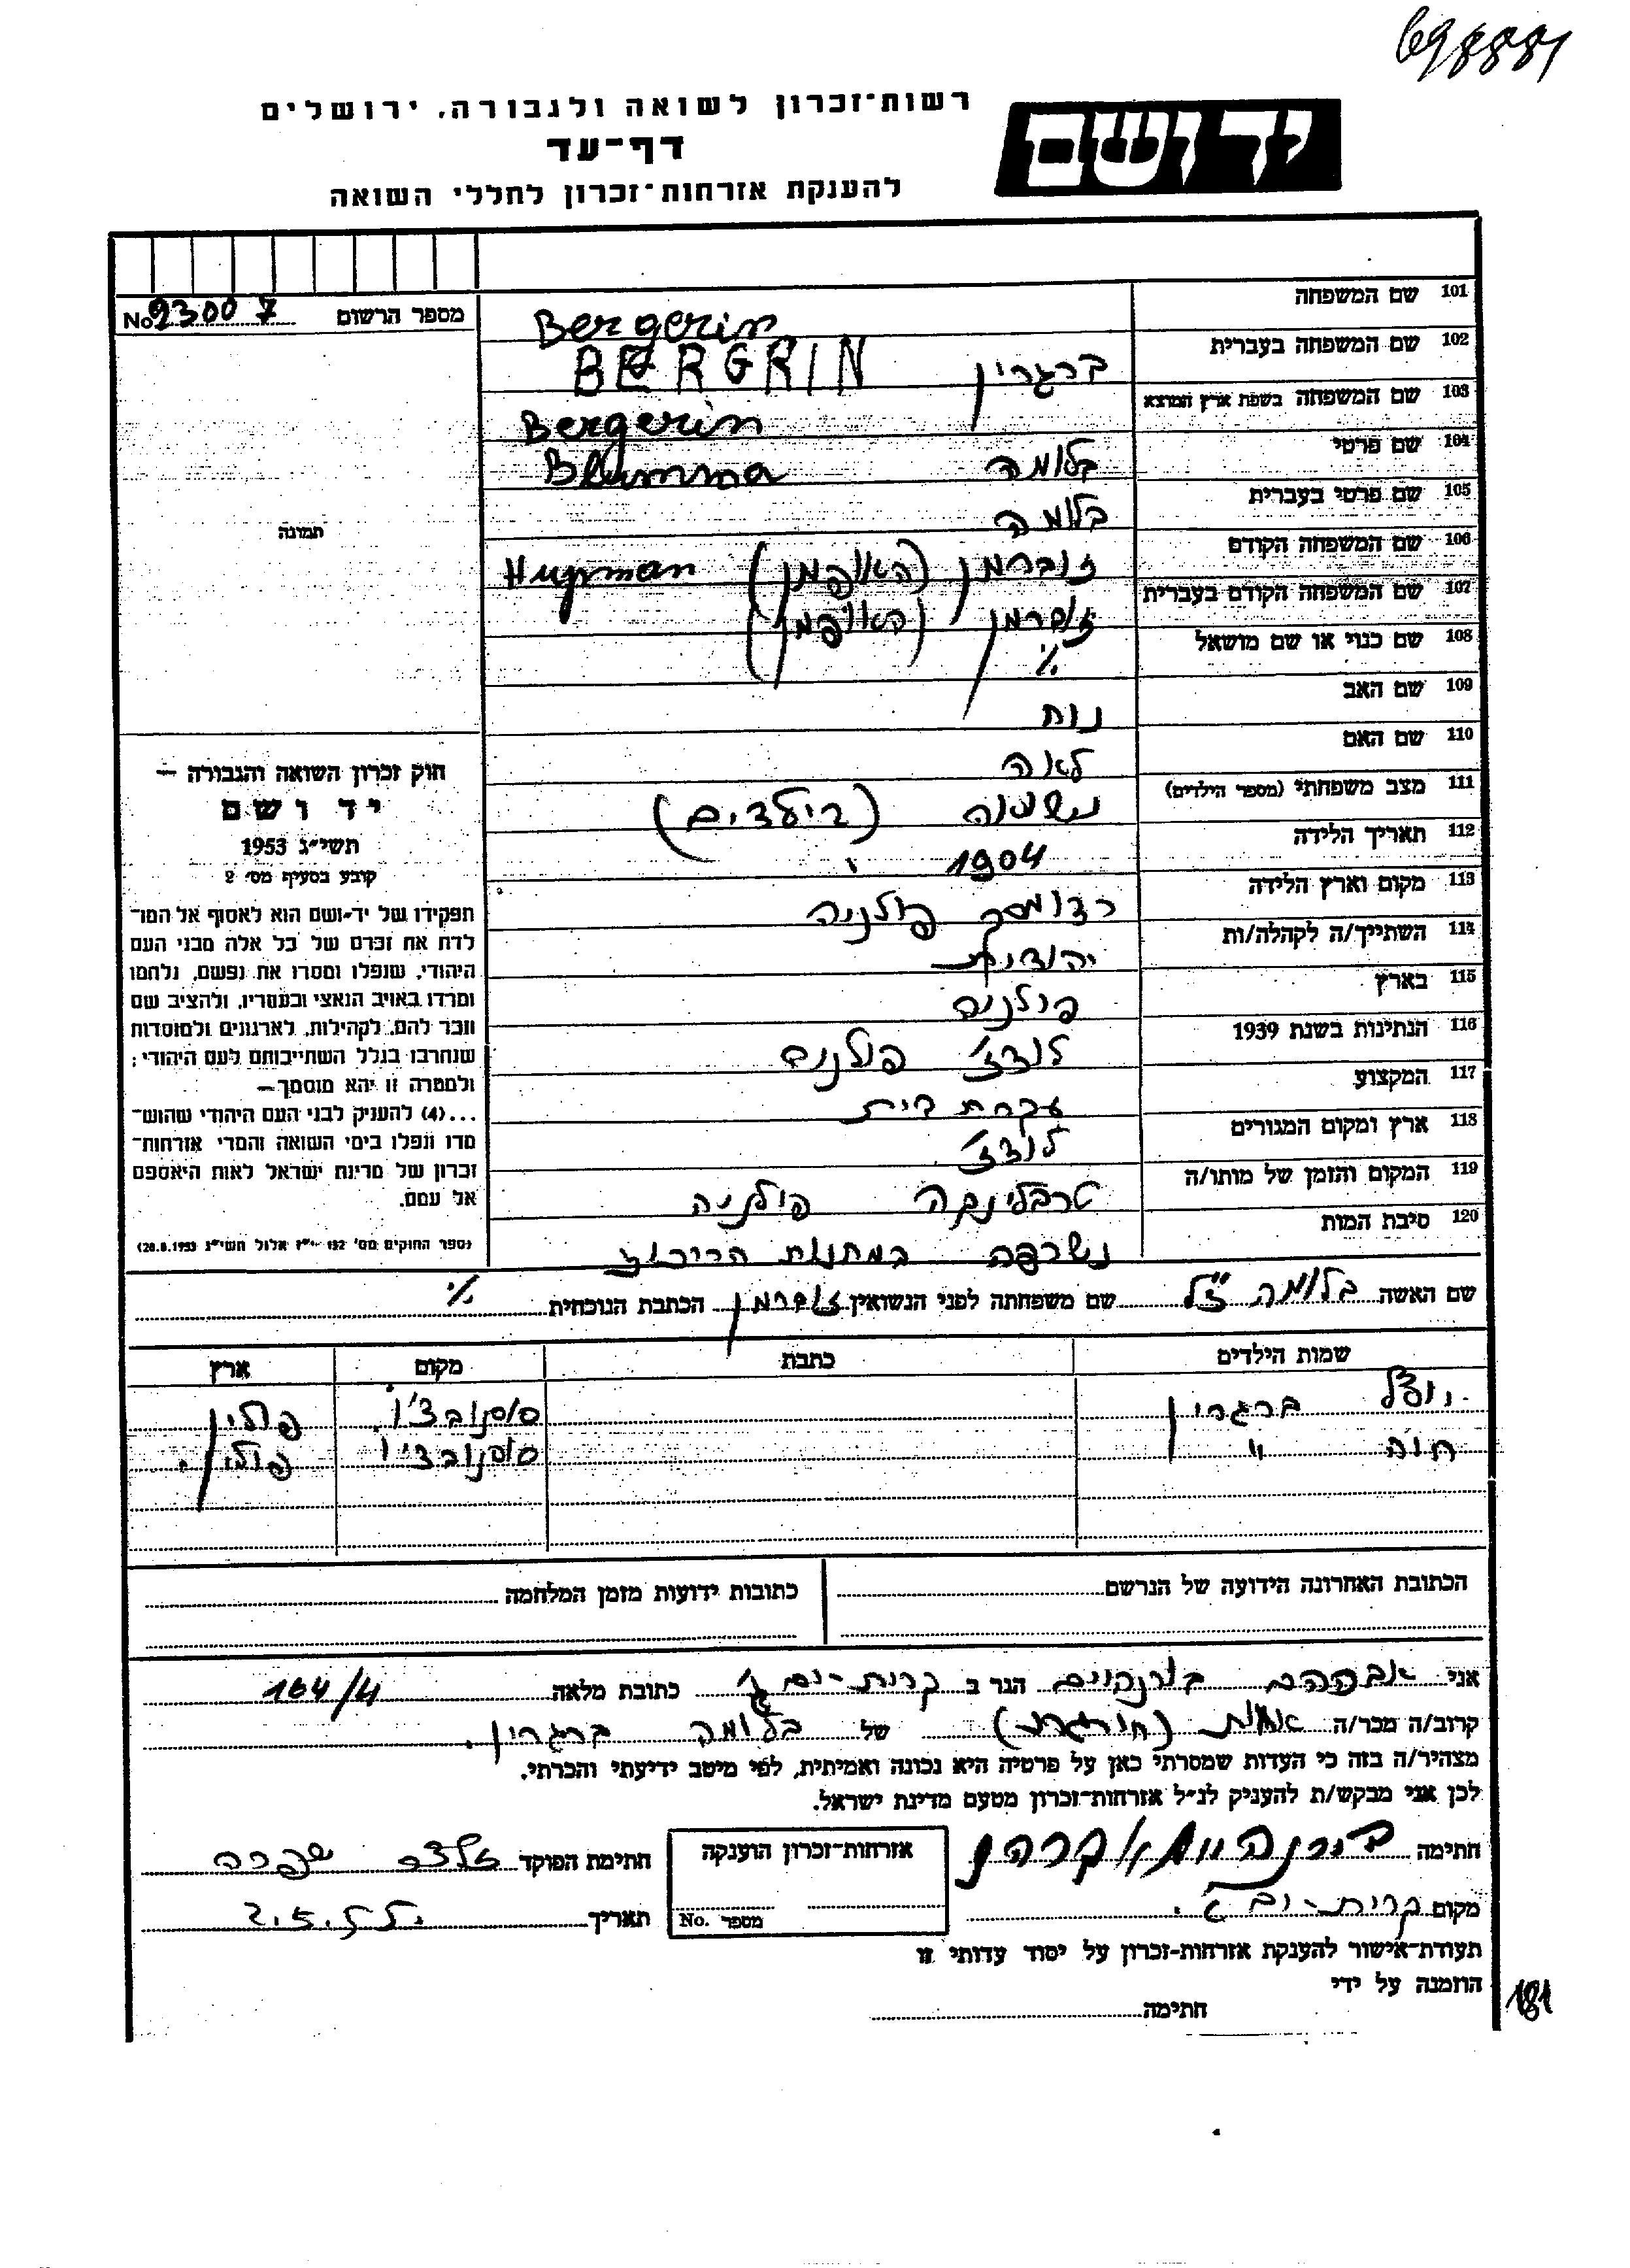 698881
רשות־זכרון לשואה ולגבורה, ירושלים
דף־עד
להענקת אזרחות־זכרון לחללי השואה
יד ושם
מספר הרשום No 93007
101 שם המשפחה Bergerin
102 שם המשפחה בעברית ברגרין BERGRIN
103 שם המשפחה בשפת ארץ המוצא Bergerin
104 שם פרטי בלומה Blumma
105 שם פרטי בעברית בלומה
106 שם המשפחה הקודם זוברמן
107 שם המשפחה הקודם בעברית זוברמן
108 שם כנוי או שם מושאל ./.
109 שם האב נוח
110 שם האם לאה
111 מצב משפחתי (מספר הילדים) נשואה
112 תאריך הלידה 1904
113 מקום וארץ הלידה רדומסק פולניה
114 השתייך/ה לקהלה/ות יהודית
115 בארץ פולניה
116 הנתינות בשנת 1939 לודז' פולנים
117 המקצוע עקרת בית
118 ארץ ומקום המגורים לודז'
119 המקום והזמן של מותו/ה טרבלינקה פולניה
120 סיבת המות נשרפה במחנות הריכוז
תמונה
חוק זכרון השואה והגבורה —
יד ושם
תשי״ג 1953
קובע בסעיף מס׳ 2
תפקידו של יד־ושם הוא לאסוף אל המו־
לדת את זכרם של כל אלה מבני העם
היהודי, שנפלו ומסרו את נפשם, נלחמו
ומרדו באויב הנאצי ובעוזריו, ולהציב שם
וזכר להם, לקהילות, לארגונים ולמוסדות
שנחרבו בגלל השתייכותם לעם היהודי;
ולמטרה זו יהא מוסמך—
...(4) להעניק לבני העם היהודי שהוש־
מדו ונפלו בימי השואה והמרי אזרחות־
זכרון של מדינת ישראל לאות היאספם
אל עמם.
(ספר החוקים מס׳ 132 י״ז אלול תשי״ג 28.8.1953)
שם האשה בלומה ז"ל שם משפחתה לפני הנשואין זוברמן הכתבת הנוכחית ./.
שמות הילדים כתבת מקום ארץ
ברגרין סוסנובצ'ו פולין
חוה " סוסנובצ'ו פולין.
הכתובת האחרונה הידועה של הנרשם כתובות ידועות מזמן המלחמה
אני אברהם בורנהיים הגר ב קרית-ים ג' כתובת מלאה 164/4
קרוב/ה מכר/ה אחות (חורגת) של בלומה ברגרין.
מצהיר/ה בזה כי העדות שמסרתי כאן על פרטיה היא נכונה ואמיתית, לפי מיטב ידיעתי והכרתי.
לכן אני מבקש/ת להעניק לנ״ל אזרחות־זכרון מטעם מדינת ישראל.
חתימה בורנהיים אברהם אזרחות־זכרון הוענקה חתימת הפוקד
מקום קרית-ים ג'. מספר No. תאריך
תעודת־אישור להענקת אזרחות־זכרון על יסוד עדותי זו
הוזמנה על ידי
חתימה
181